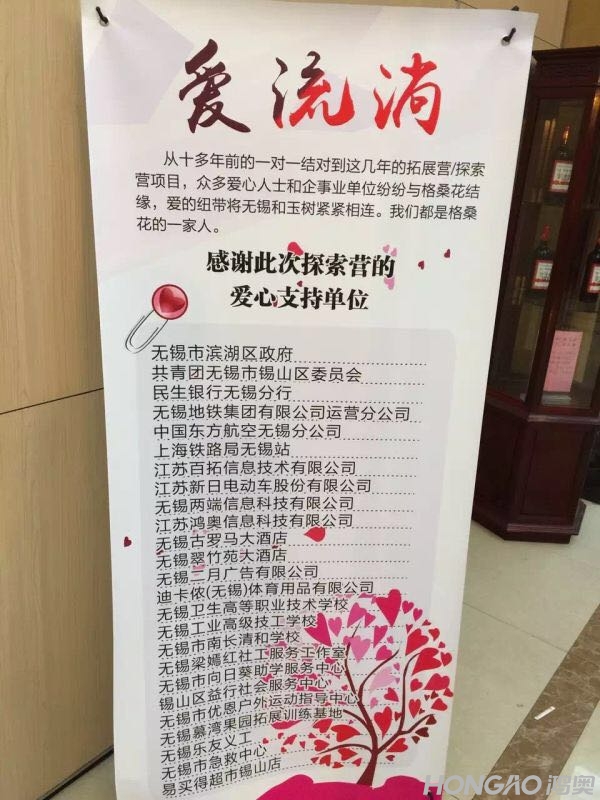 爱流淌
从十多年前的一对一结对到这几年的拓展营/探索
营项目，众多爱心人士和企事业单位纷纷与格桑花结
缘，爱的纽带将无锡和玉树紧紧相连。我们都是格桑
花的一家人。
感谢此次探索营的
爱心支持单位
无锡市滨湖区政府
共青团无锡市锡山区委员会
民生银行无锡分行
无锡地铁集团有限公司运营分公司
中国东方航空无锡分公司
上海铁路局无锡站
江苏百拓信息技术有限公司
江苏新日电动车股份有限公司
无锡两端信息科技有限公司
江苏鸿奥信息科技有限公司
无锡古罗马大酒店
无锡翠竹苑大酒店
无锡二月广告有限公司
迪卡侬(无锡)体育用品有限公司
无锡卫生高等职业技术学校
无锡工业高级技工学校
无锡市南长清和学校
无锡梁嫣红社工服务工作室
无锡市向日葵助学服务中心
锡山区益行社会服务中心
无锡市优恩户外运动指导中心
无锡慕湾果园拓展训练基地
无锡乐友义工
无锡市急救中心
易买得超市锡山店
HONGAO 鸿奥